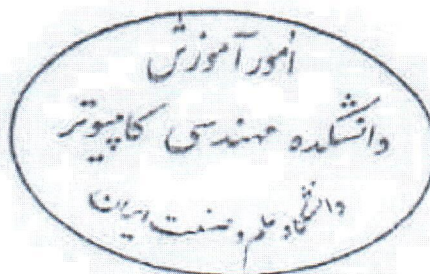 امور آموزش
دانشکده مهندسی کامپیوتر
دانشگاه علم و صنعت ایران